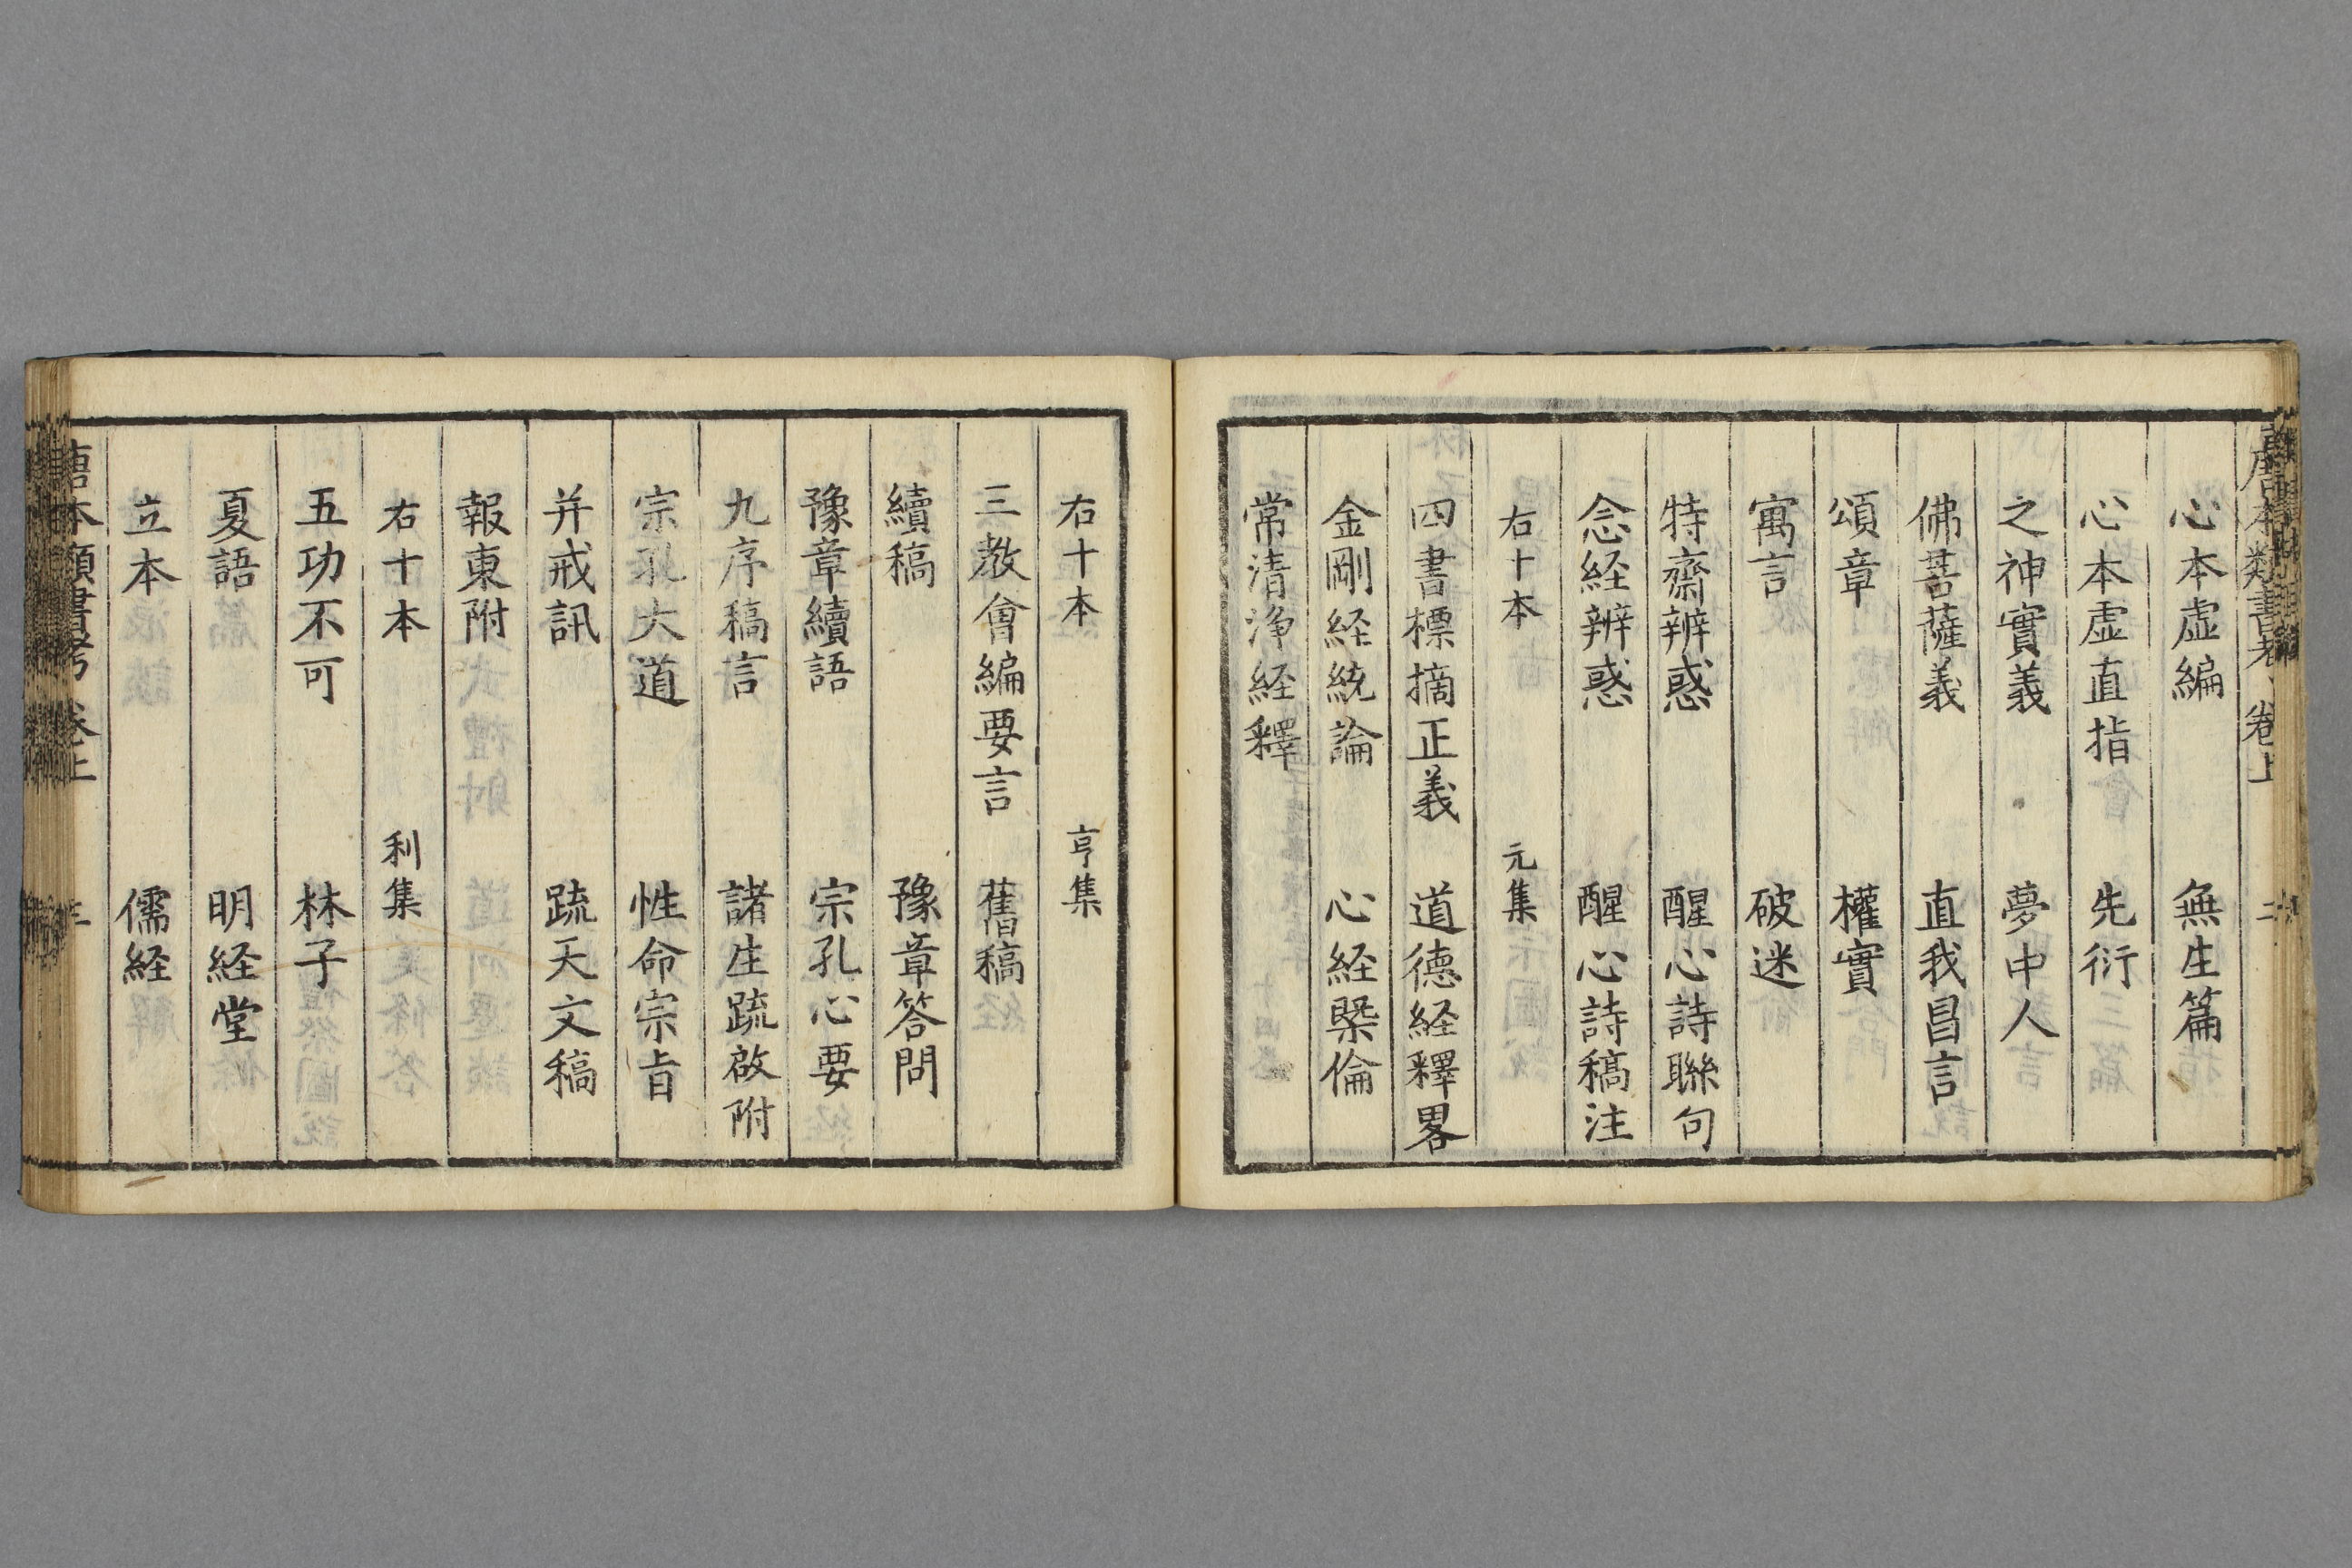 唐本類書考 卷上 二
心本虛編 無生篇
心本虛直指 先衍
之神實義 夢中人
佛菩薩義 直我昌言
頌章 權實
寓言 破迷
特齋辨惑 醒心詩聯句
念経辨惑 醒心詩稿注
右十本 元集
四書標摘正義 道德経釋畧
金剛経統論 心経槩倫
常清浄経釋
右十本 亨集
三教會編要言 舊稿
續稿 豫章答問
豫章續語 宗孔心要
九序稿言 諸生疏啟附
宗孔大道 性命宗旨
并戒訊 疏天文稿
報東附
右十本 利集
五功不可 林子
夏語 明経堂
立本 儒経
唐本類書考 卷上 三